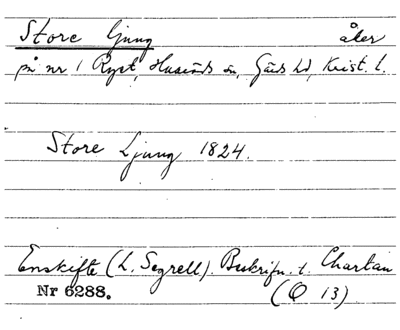 Store Ljung åker
på nr 1 Ryet, Husends sn, Gärds hd, Krist. l.
Store Ljung 1824.
Enskifte (L. Segrell). Beskrifn. t. Chartan
Nr 6288. (Q 13)